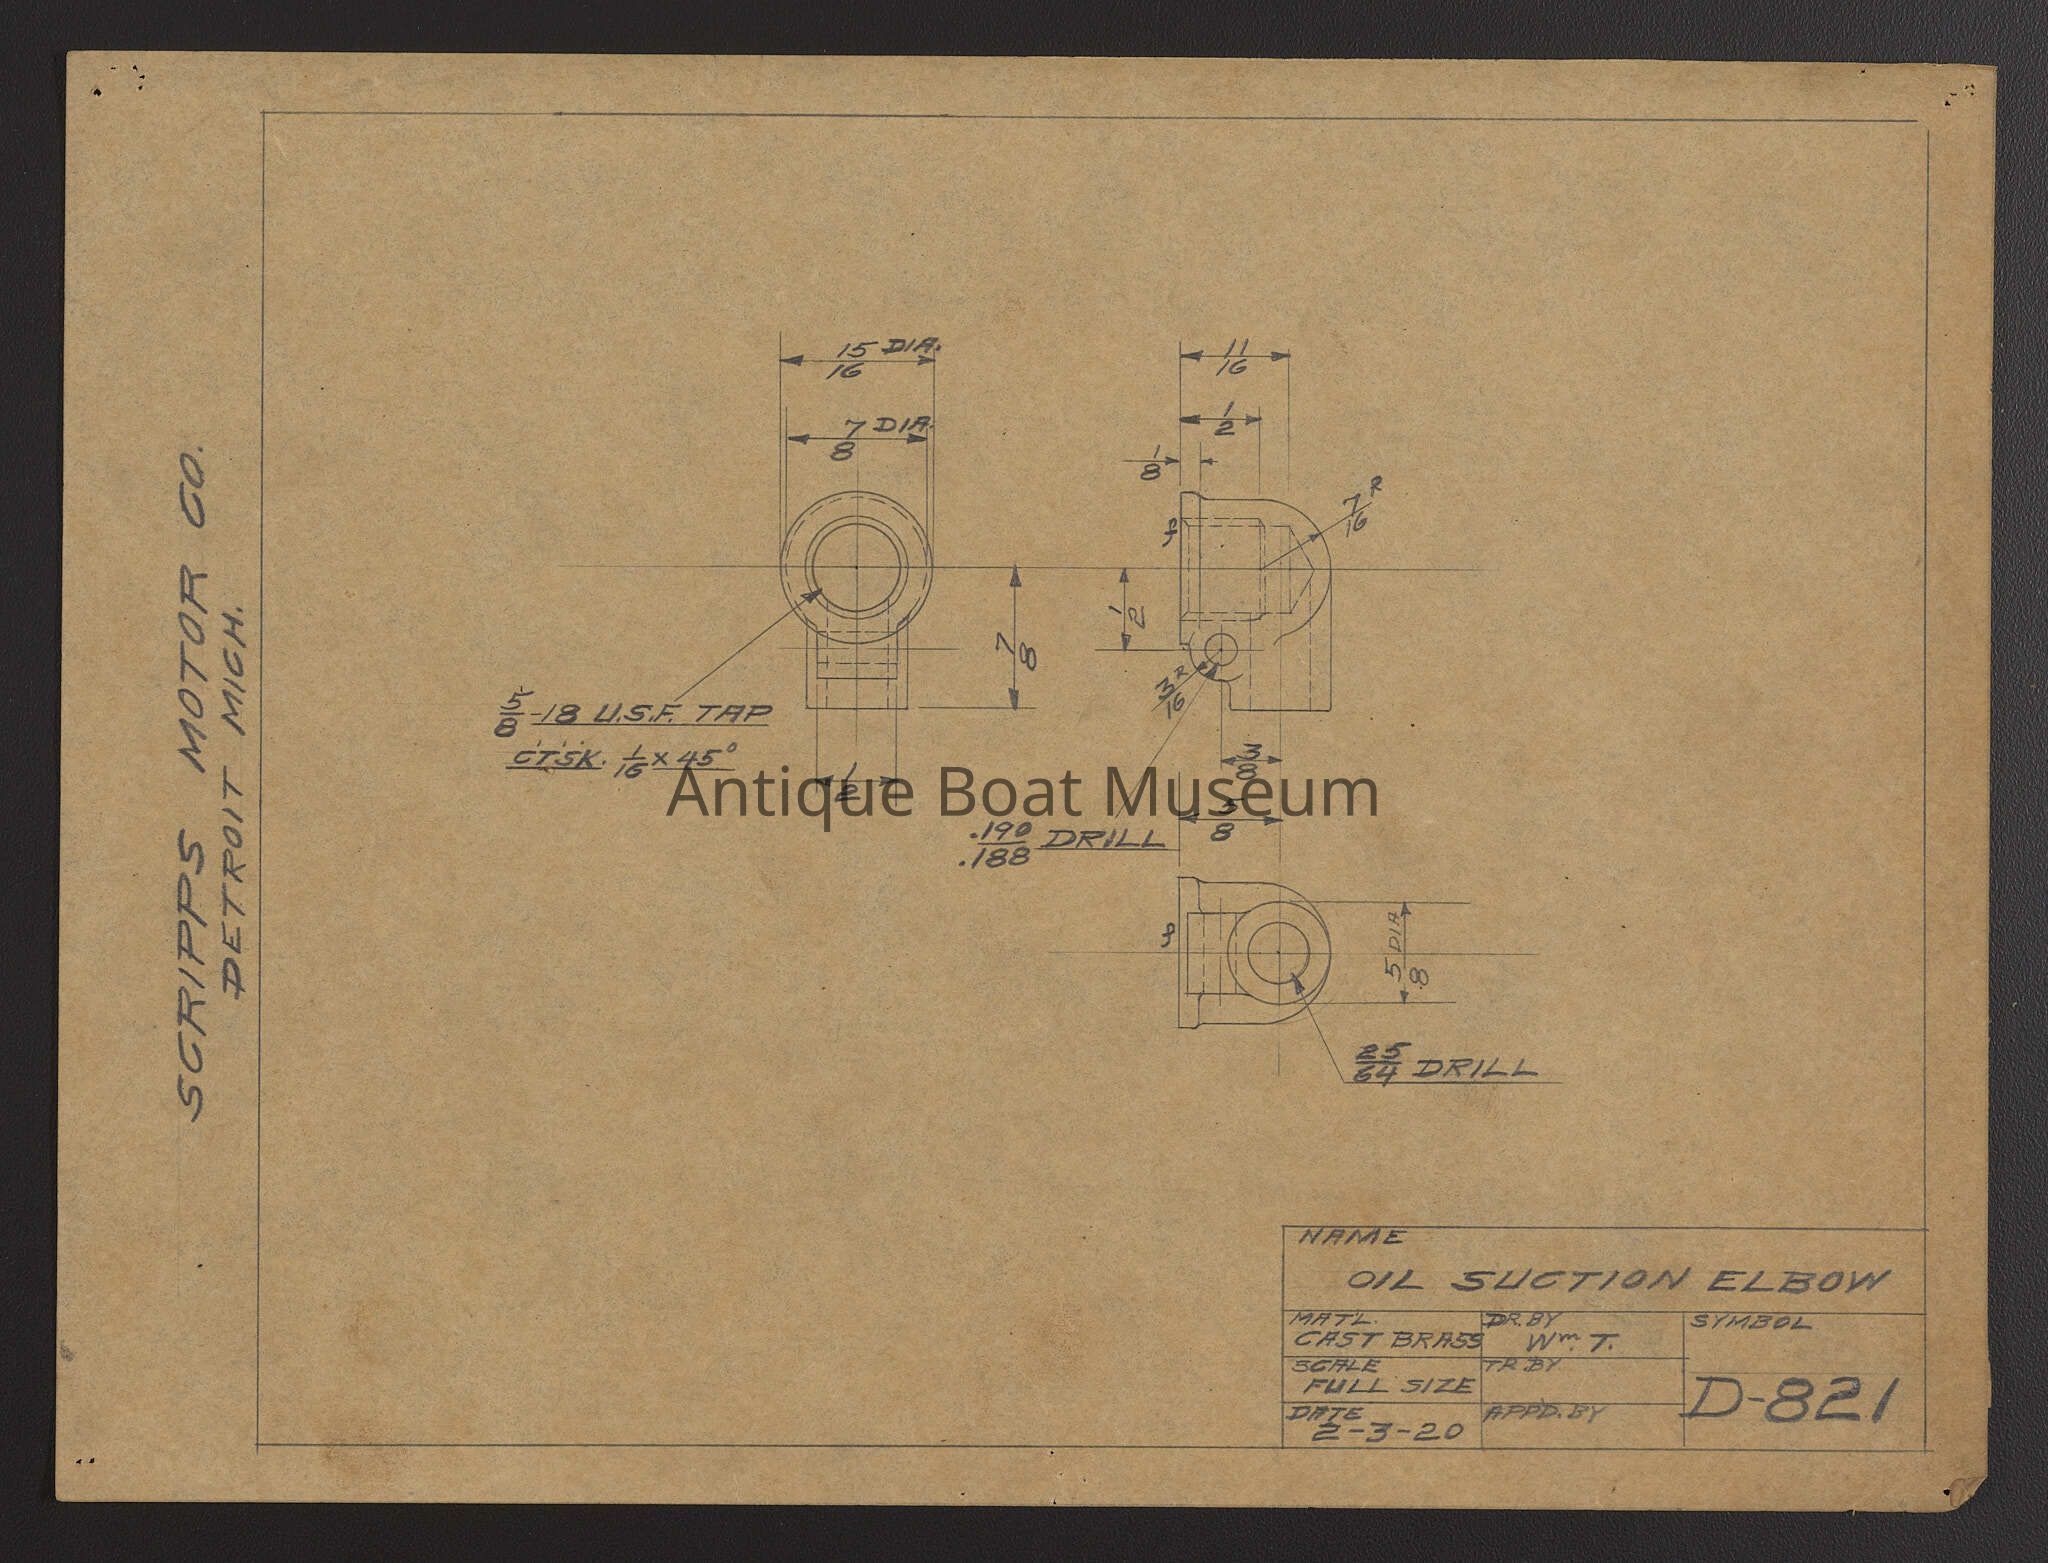 SCRIPPS MOTOR CO.
DETROIT MICH.
15/16 DIA.
7/8 DIA.
11/16
1/2
1/8
7/16 R
f
1/2
7/8
3/16 R
5/8-18 U.S.F. TAP
C'T'S'K. 1/16 x 45°
1/2
3/8
5/8
.190/.188 DRILL
Antique Boat Museum
f
5/8 DIA
25/64 DRILL
NAME
OIL SUCTION ELBOW
MAT'L. CAST BRASS
DR. BY Wm. T.
SYMBOL
D-821
SCALE FULL SIZE
TR BY
DATE 2-3-20
APP'D. BY